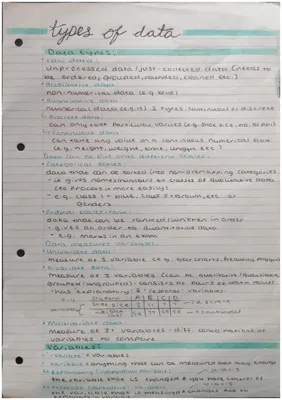 types of data
Data types:
- raw data:
unprocessed data / just-collected data (needs to
be ordered, grouped, rounded, cleaned etc.)
- Qualitative data:
non-numerical data (e.g. blue)
- Quantitative data:
numerical data (e.g. 11) 2 types: continuous or discrete
- Discrete data:
can only take particular values (e.g. shoe size, no. of
- Continuous data:
can take any value on a continuous numerical scale
(e.g. height, weight, time, length etc.)
Data can be put into different scales:
- Categorical scales:
data that can be sorted into non-overlapping categories
- gives names/numbers to classes of qualitative data
(to process more easily)
- e.g. class 1 = blue, class 2 = brown, etc. or
genders
- Ordinal scales / rank:
data that can be ranked / written in order
- gives an order to qualitative data
- e.g. marks in an exam
Data measures variables:
- Univariate data:
measure of 1 variable e.g. bar charts, frequency
- Bivariate data:
measure of 2 variables (can be qualitative/quantitative,
grouped/ungrouped) - consists of pairs of data values
- has 'explanatory' & 'response' variables
e.g. Student A B C D
- Multivariate data:
measure of 3+ variables - diff. combinations of
variables to compare
Variables:
- variable = variables
- variable = anything that can be measured that may change
- explanatory (independent) variable:
the variable that is changed & you have control of
- response (dependent) variable:
the variable that is measured & changes due to